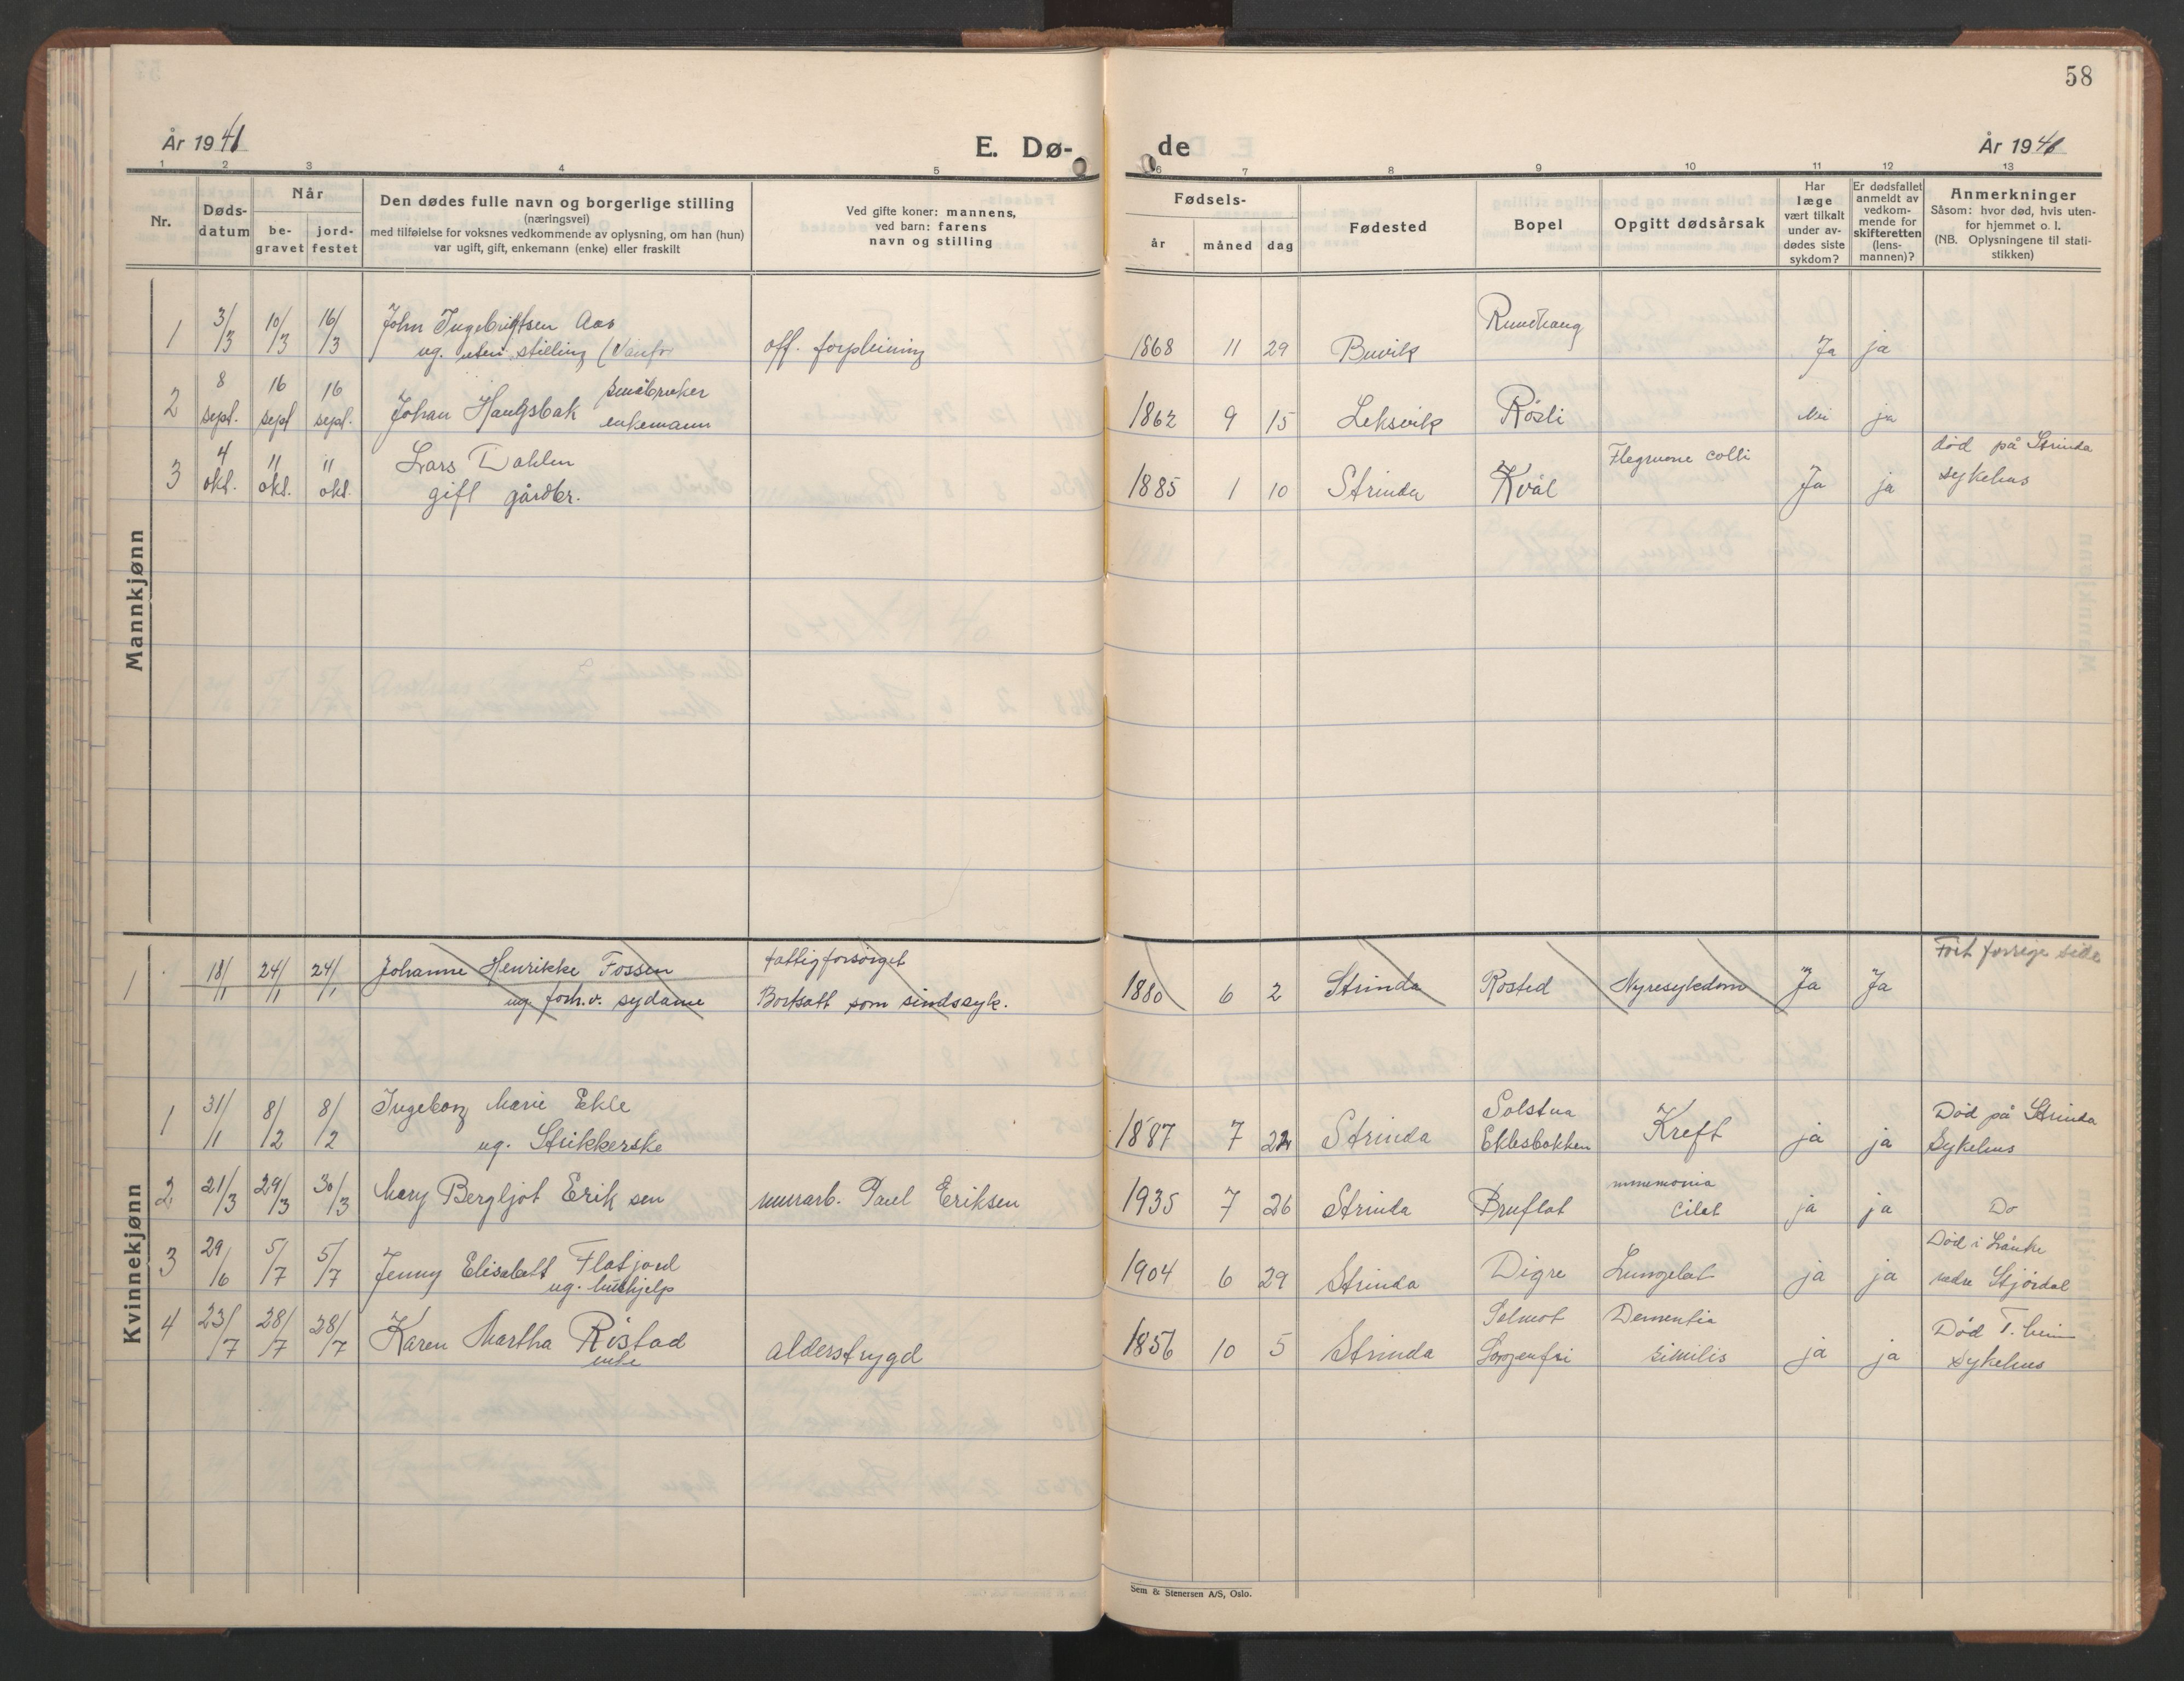 58
År 1941
E. Dø-
de
År 1941
1 2 3 4 5 6 7 8 9 10 11 12 13
Nr.
Døds-
datum
Når
be-
gravet
jord-
festet
Den dødes fulle navn og borgerlige stilling
(næringsvei)
med tilføielse for voksnes vedkommende av oplysning, om han (hun)
var ugift, gift, enkemann (enke) eller fraskilt
Ved gifte koner: mannens,
ved barn: farens
navn og stilling
Fødsels-
år
måned
dag
Fødested
Bopel
Opgitt dødsårsak
Har
læge
vært tilkalt
under av-
dødes siste
sykdom?
Er dødsfallet
anmeldt av
vedkom-
mende for
skifteretten
(lens-
mannen)?
Anmerkninger
Såsom: hvor død, hvis uten-
for hjemmet o. l.
(NB. Oplysningene til stati-
stikken)
Mannkjønn
1 3/3 10/3 16/3 John Ingebrigtsen Aas
ug. uten stilling (Vanfør
off. forpleining 1868 11 29 Buvik Rundhaug Ja ja
2 8 sept. 16 sept 16 sept. Johan Haugsbak småbruker
enkemann
1862 9 15 Leksvik Rösli Nei ja
3 4 okt. 11 okt. 11 okt. Lars Dahlen
gift gårdbr.
1885 1 10 Strinda Kvål Flegmone colli Ja ja død på Strinda
sykehus
Kvinnekjønn
1 18/1 24/1 24/1 Johanne Henrikke Fossen
ug. forh.v. sydame
fattigforsörget
Bortsatt som sindssyk.
1880 6 2 Strinda Rosted Nyresykdom Ja Ja Fört forrige side
1 31/1 8/2 8/2 Ingeborg Marie Ekle
ug. Strikkerske
1887 7 22 Strinda Solstua
Eklesbakken Kreft ja ja Död på Strinda
Sykehus
2 21/3 29/3 30/3 Mary Bergljot Eriksen murarb. Paul Eriksen 1935 7 26 Strinda Bruflat ja ja Do
3 29/6 5/7 5/7 Jenny Elisabett Flatjord
ug. hushjelp
1904 6 29 Strinda Digre ja ja Död i Lånke
Stjördal
4 23/7 28/7 28/7 Karen Martha Ristad
enke
alderstrygd 1856 10 5 Strinda Solmot
Sorgenfri Dementia
similis ja ja Död T.heim
Sykehus
Sem & Stenersen A/S, Oslo.